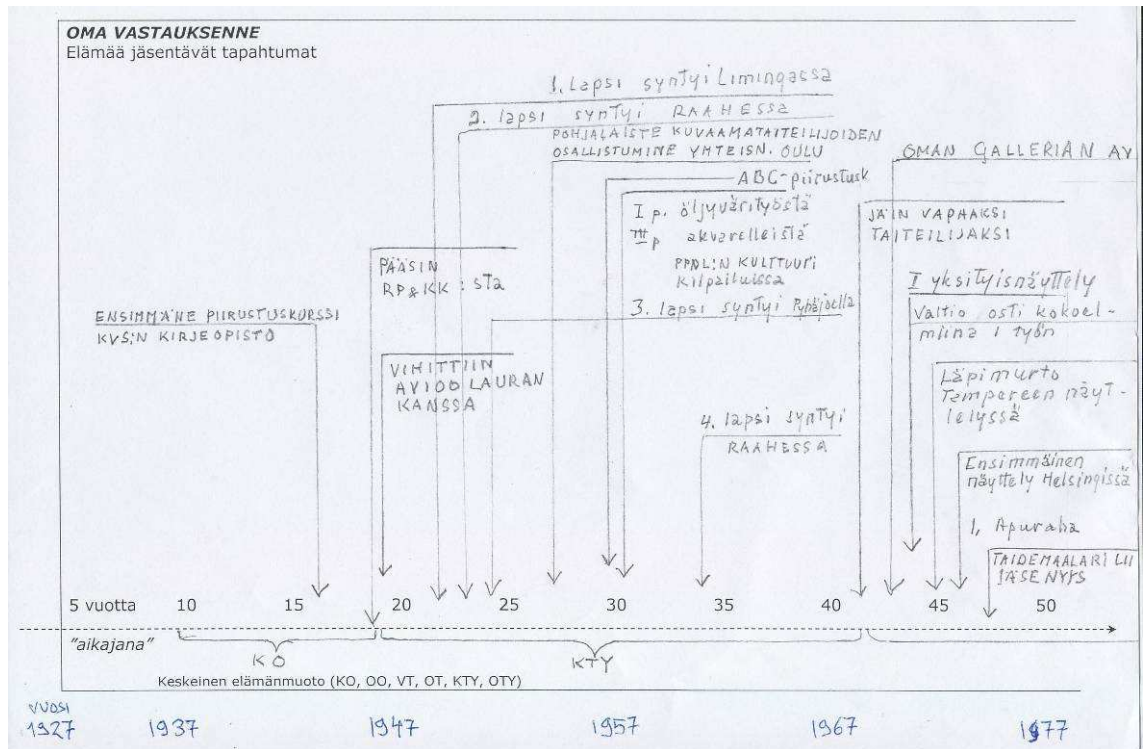 OMA VASTAUKSENNE
Elämää jäsentävät tapahtumat
1. Lapsi syntyi Limingassa
2. lapsi syntyi RAAHESSA
POHJALAISTE KUVAAMATAITEILIJOIDEN
OSALLISTUMINE YHTEISN. OULU
OMAN GALLERIAN AV
ABC-piirustusk
I p. öljyvärityöstä
III p akvarelleistä
PPDL:N KULTTUURI
kilpailuissa
JÄIN VAPAAKSI
TAITEILIJAKSI
PÄÄSIN
RP&KK:sta
I yksityisnäyttely
Valtio osti kokoel-
miina 1 työn
3. lapsi syntyi Pyhäjoella
ENSIMMÄNE PIIRUSTUSKURSSI
KVS:N KIRJEOPISTO
VIHITTIIN
AVIOO LAURAN
KANSSA
Läpimurto
Tampereen näyt-
telyssä
4. lapsi syntyi
RAAHESSA
Ensimmäinen
näyttely Helsingissä
1, Apuraha
TAIDEMAALARI LII
JÄSENYYS
5 vuotta 10 15 20 25 30 35 40 45 50
"aikajana"
KO KTY
Keskeinen elämänmuoto (KO, OO, VT, OT, KTY, OTY)
VUOSI
1927 1937 1947 1957 1967 1977